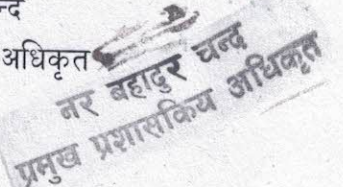 न्द
अधिकृत
नर बहादुर चन्द
प्रमुख प्रशासकिय अधिकृत